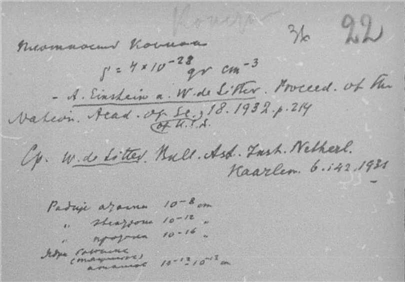 36 22
Плотность Космоса
ρ = 4 × 10⁻²⁸ gr cm⁻³
- A. Einstein a. W. de Sitter. Proceed. of the
Nation. Acad. of Sc., 18. 1932. p. 214
of U.S.A.
Ср. W. de Sitter. Bull. Ast. Inst. Netherl.
Haarlem. 6. 142. 1931
Радиус атома 10⁻⁸ cm
" электрона 10⁻¹² "
" протона 10⁻¹⁶ "
Ядра
атомное 10⁻¹² - 10⁻¹³ cm